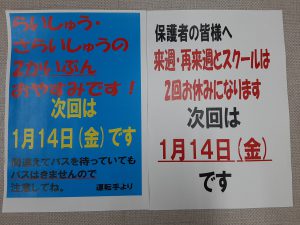 らいしゅう・
さらいしゅうの
2かいぶん
おやすみです！
次回は
1月14日(金)です
間違えてバスを待っていても
バスはきませんので
注意してね。
運転手より
保護者の皆様へ
来週・再来週とスクールは
2回お休みになります
次回は
1月14日(金)
です